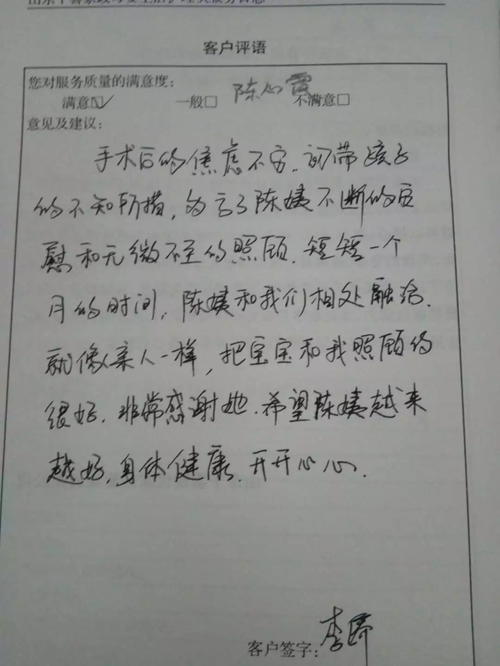 客户评语
您对服务质量的满意度:
陈心霞
满意☑ 一般□ 不满意□
意见及建议:
手术后的焦虑不安.初带孩子
的不知所措,为了陈姨不断的安
慰和无微不至的照顾.短短一个
月的时间,陈姨和我们相处融洽.
就像亲人一样,把宝宝和我照顾的
很好.非常感谢她.希望陈姨越来
越好,身体健康.开开心心.
客户签字:李